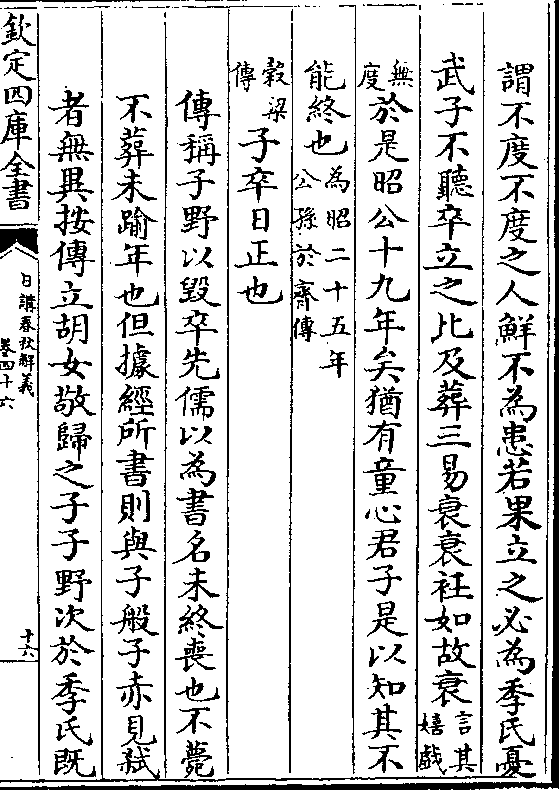 謂不度不度之人鮮不為患若果立之必為季氏憂
武子不聽卒立之比及葬三易衰衰衽如故衰言其嬉戲
無度於是昭公十九年矣猶有童心君子是以知其不
能終也為昭二十五年公孫於齊傳
穀梁傳子卒日正也
傳稱子野以毀卒先儒以為書名未終喪也不薨
不葬未踰年也但據經所書則與子般子赤見弑
者無異按傳立胡女敬歸之子子野次於季氏既
欽定四庫全書
日講春秋解義
卷四十六
十六